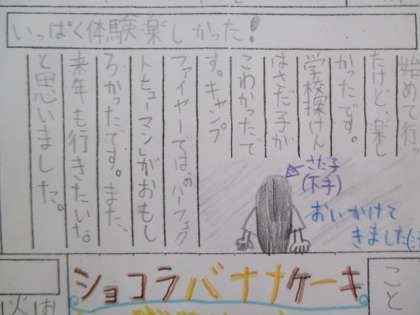 いっぱく体験楽しかった!
始めて行っ
たけど、楽し
かったです。
学校探けん
はさだ子が
こわかったで
す。キャンプ
ファイヤーでは、のパーフェク
トヒューマンがおもし
ろかったです。また、
来年も行きたいな
と思いました。
さだ子
(下手)
おいかけて
きました(:
ショコラバナナケーキ
こと